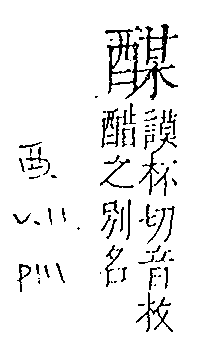 謨杯切音枚
醋之別名
酉.
V.11.
P111